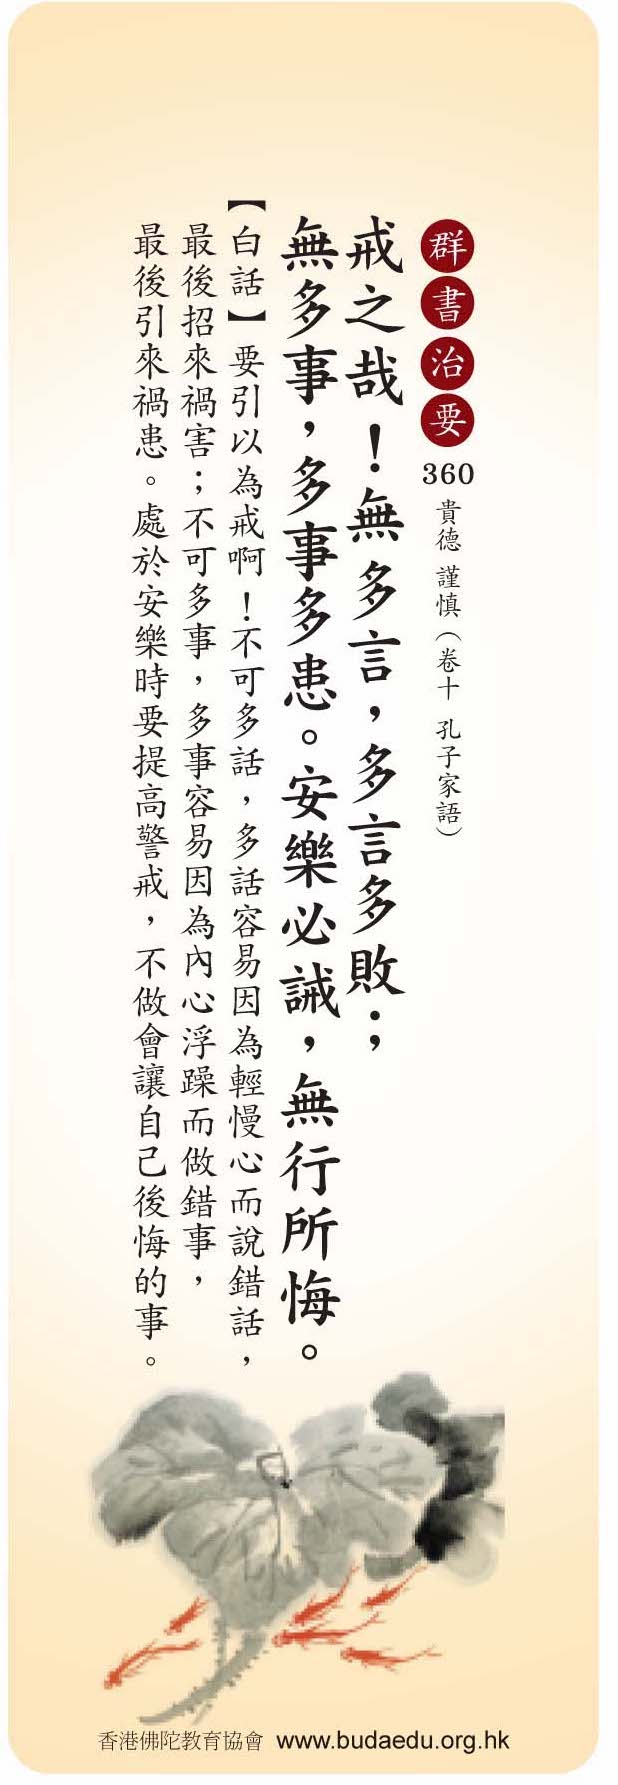 群書治要 360 貴德 謹慎（卷十 孔子家語）
戒之哉！無多言，多言多敗；
無多事，多事多患。安樂必誡，無行所悔。
【白話】要引以為戒啊！不可多話，多話容易因為輕慢心而說錯話，
最後招來禍害；不可多事，多事容易因為內心浮躁而做錯事，
最後引來禍患。處於安樂時要提高警戒，不做會讓自己後悔的事。
香港佛陀教育協會 www.budaedu.org.hk